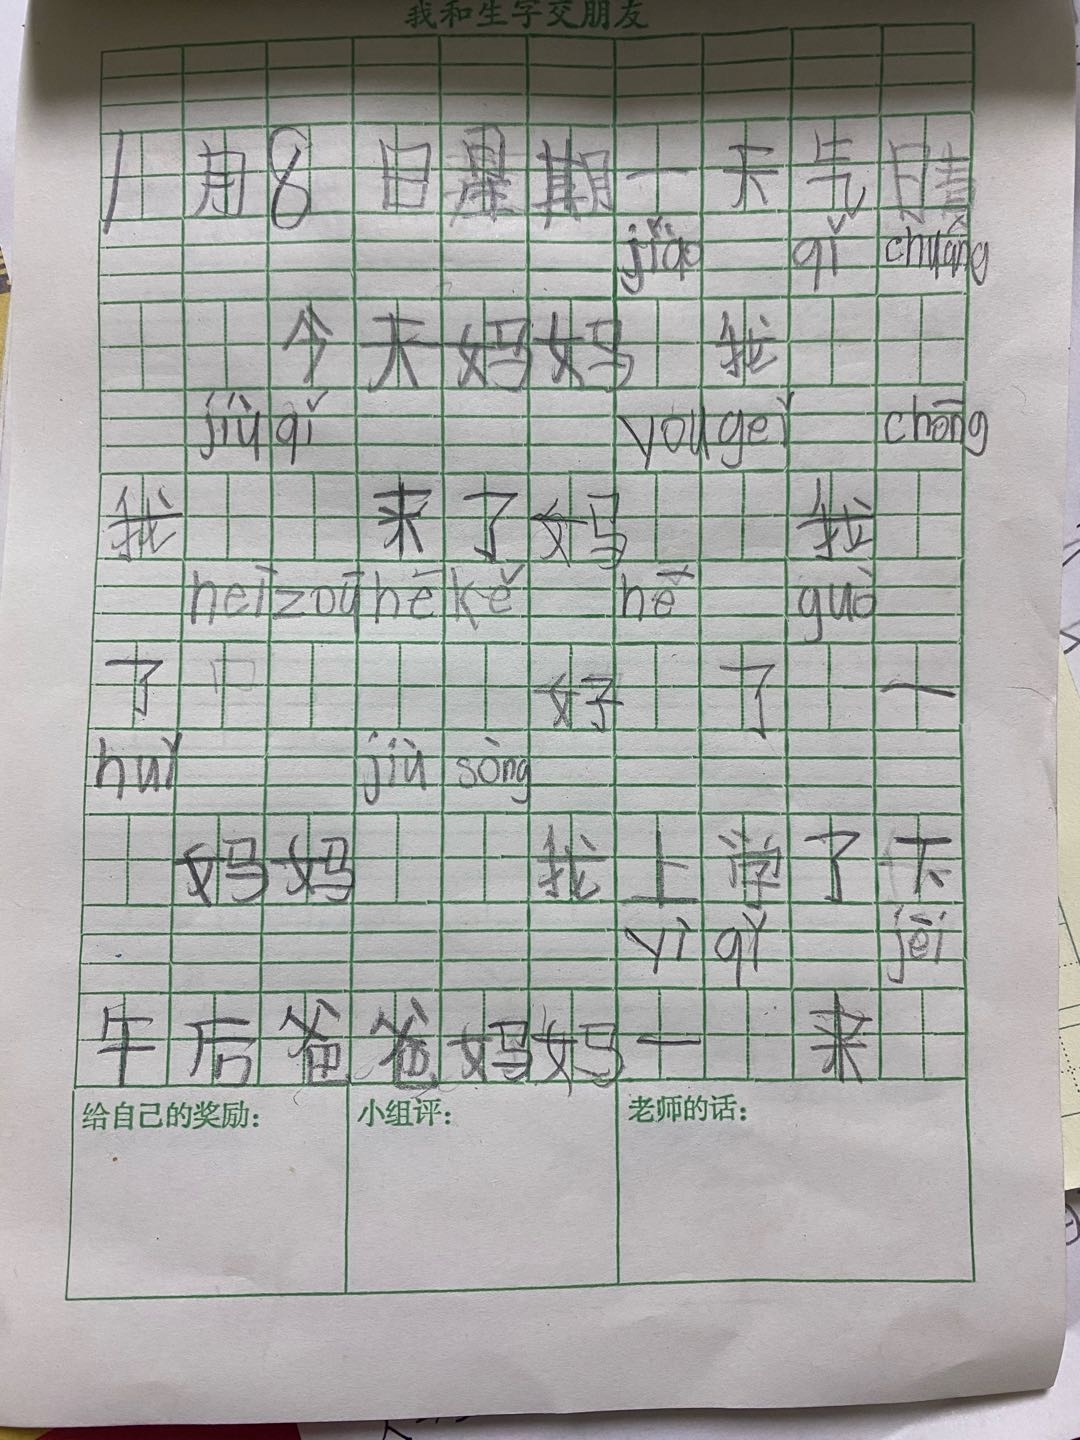 我和生字交朋友
1月8日星期一天气晴
jiǎo qǐ chuáng
今天妈妈 我
jiù qǐ yòu gěi chōng
我 来了妈 我
hei zōu hē kě hē guò
了 好 了 一
huì jiù sòng
妈妈 我上学了下
yì qǐ jēi
午后爸爸妈妈一 来
给自己的奖励：
小组评：
老师的话：